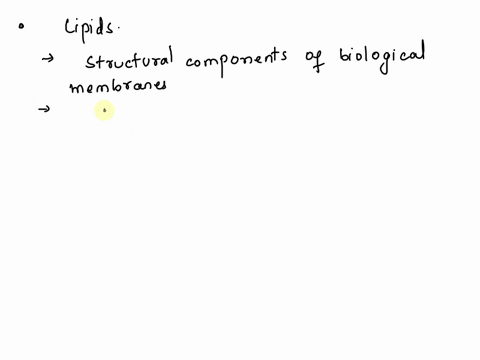 • Lipids.
→ Structural components of biological
membranes
→